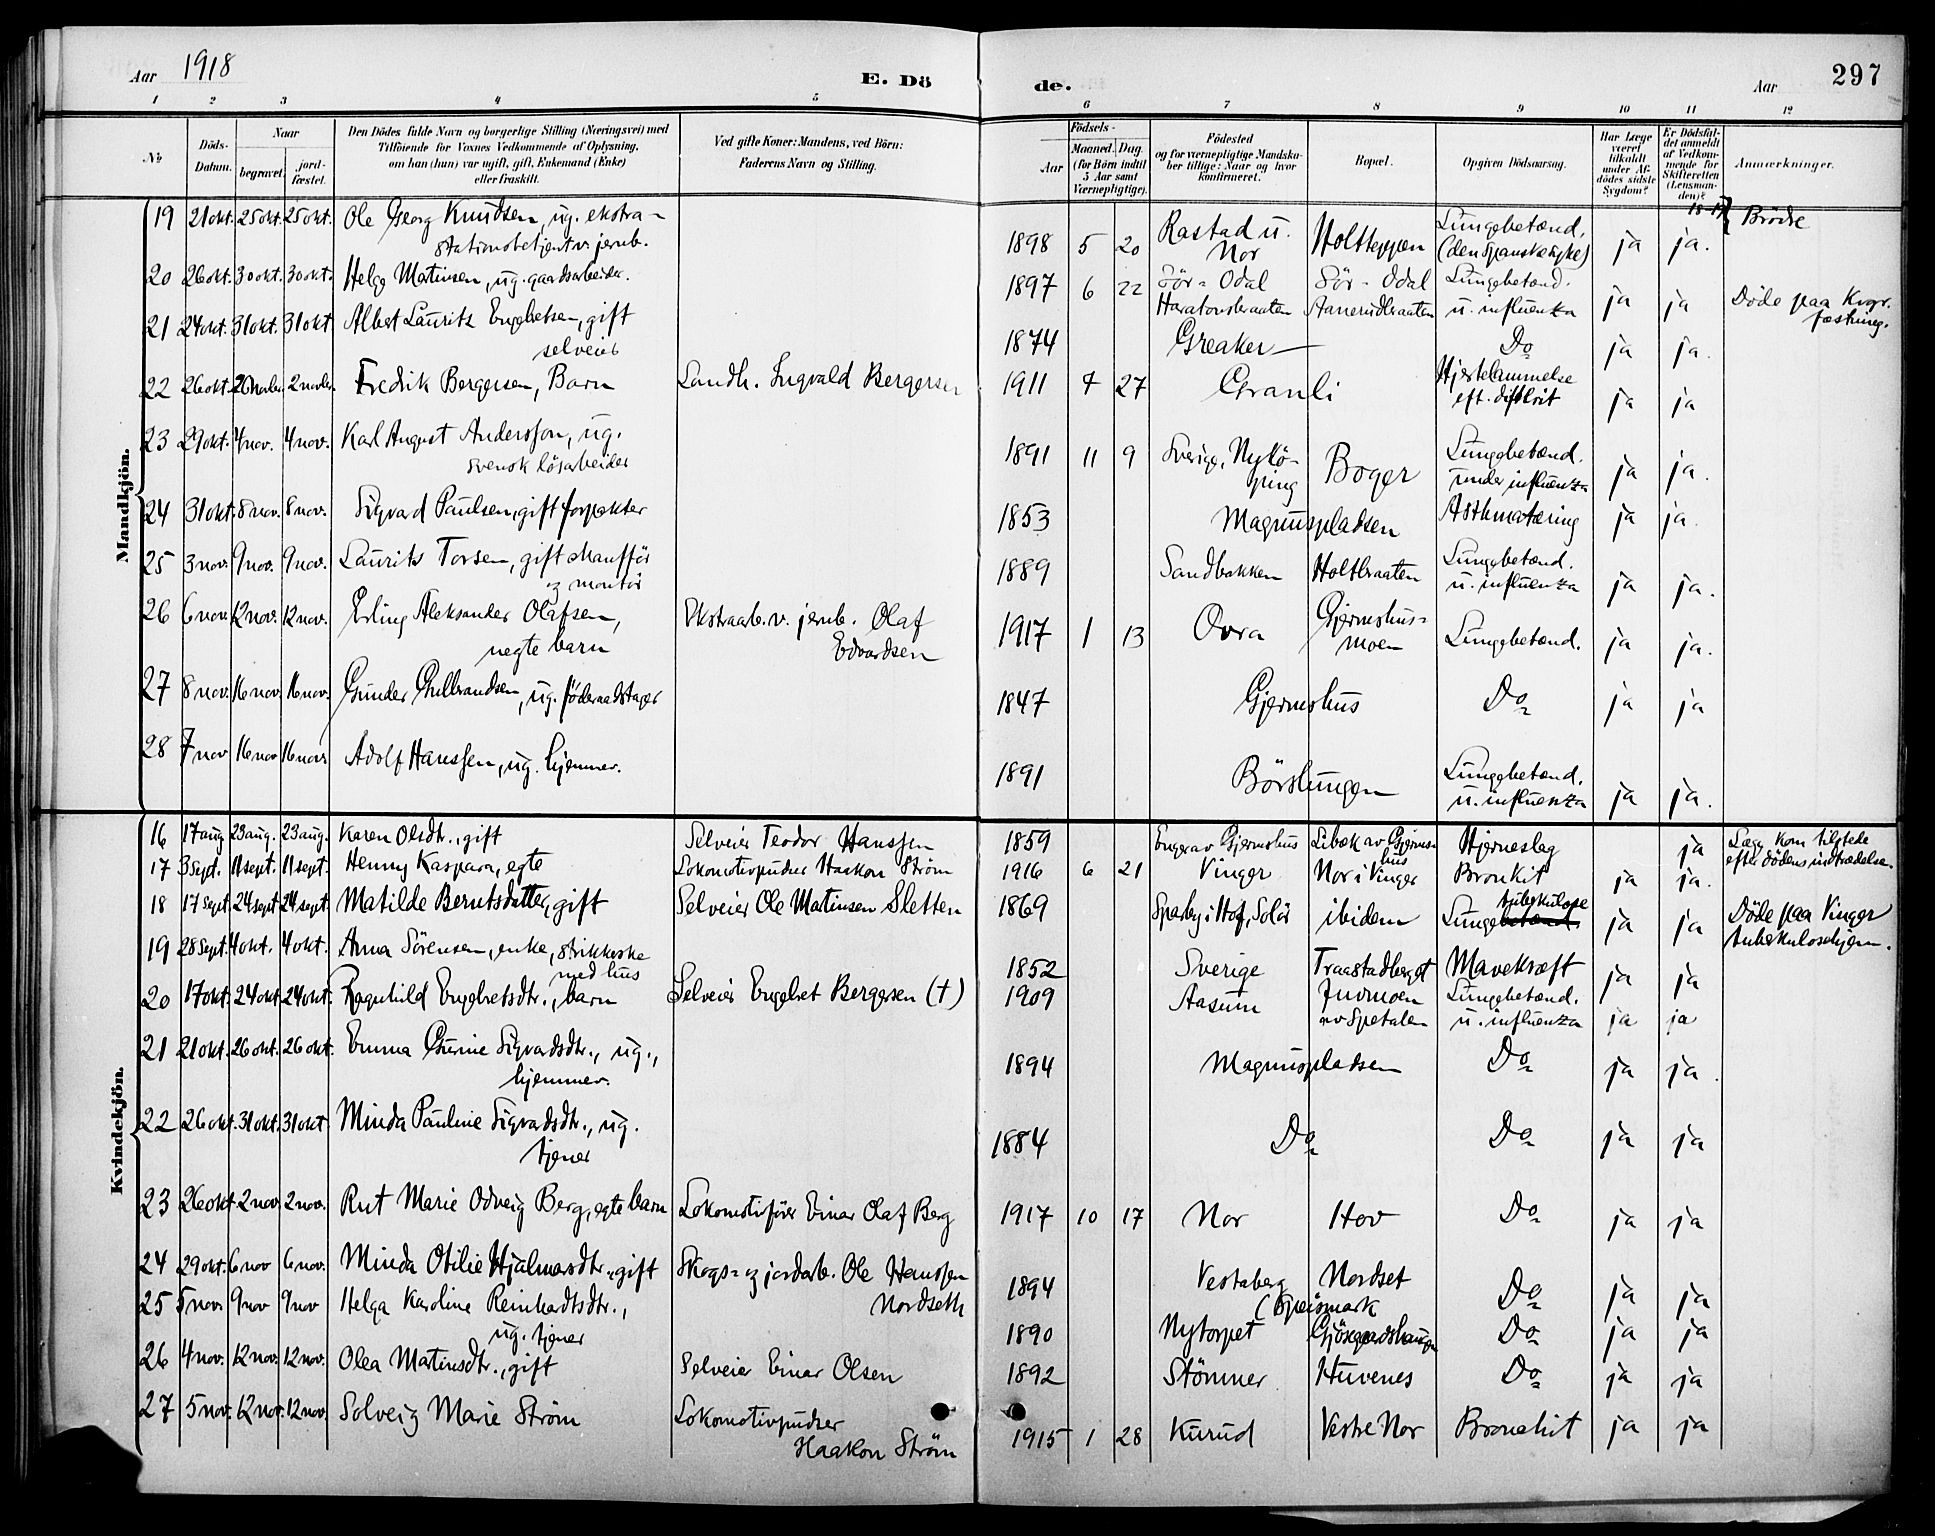 Aar 1918 E. Dö
de. Aar 297
1 2 3 4 5 6 7 8 9 10 11 12
№
Döds-Datum.
Naar
begravet.
jord-fæstet.
Den Dödes fulde Navn og borgerlige Stilling (Næringsvei) med
Tilföiende for Voxnes Vedkommende af Oplysning,
om han (hun) var ugift, gift, Enkemand (Enke)
eller fraskilt.
Ved gifte Koner: Mandens, ved Börn:
Faderens Navn og Stilling.
Födsels-
Aar
Maaned. Dag.
(for Börn indtil
5 Aar samt
Værnepligtige).
Födested
og for værnepligtige Mandska-
ber tillige: Naar og hvor
konfirmeret.
Bopæl.
Opgiven Dödsaarsag.
Har Læge
været
tilkaldt
under Af-
dödes sidste
Sygdom?
Er Dödsfal-
det anmeldt
af Vedkom-
mende for
Skifteretten
(Lensman-
den)?
Anmærkninger.
Mandkjön.
19 21 okt. 25 okt. 25 okt. Ole Georg Knudsen, ug. ekstra-
stationsbetjent v. jernb. 1898 5 20 Rastad u. Nor Holtteppen Lungebetænd. (den Spanske syke) ja ja. 18-19 Brödre
20 26 okt. 30 okt. 30 okt. Helge Martinsen, ug. gaardsarbeider. 1897 6 22 Sör-Odal Sör-Odal Lungebetænd. u. influenza ja ja Döde paa Kvgr. fæstning.
21 24 okt. 31 okt. 31 okt. Albert Lauritz Engebretsen, gift
selveier 1874 Greaker Do ja ja.
22 26 okt. 2 novbr. 2 novbr. Fredrik Bergersen, Barn Landh. Ingvald Bergersen 1911 7 27 Granli Hjertelammelse
eft. difterit ja ja
23 29 okt. 4 nov. 4 nov. Karl August Andersson, ug.
svensk lösarbeider 1891 11 9 Sverige, Nykö-
ping Boger Lungebetænd.
under influenza ja ja.
24 31 okt. 8 nov. 8 nov. Sigvard Paulsen, gift forpakter 1853 Magnuspladsen Asthmatæring ja ja.
25 3 nov. 9 nov. 9 nov. Laurits Torsen, gift chaufför
og montör 1889 Sandbakken Holtbraaten Lungebetænd.
u. influenza ja ja.
26 6 nov. 12 nov. 12 nov. Erling Aleksander Olafsen,
uegte barn Ekstraarb. v. jernb. Olaf
Edvardsen 1917 1 13 Ovra Gjermshus-
moen Lungebetænd. ja ja.
27 8 nov. 16 nov. 16 nov. Gunder Gulbrandsen, ug. föderaadstager 1847 Gjermshus Do ja ja
28 7 nov 16 nov 16 nov Adolf Hanssen, ug. hjemmev. 1891 Börslungen Lungebetænd.
u. influenza ja ja.
Kvindekjön.
16 17 aug 23 aug. 23 aug. Karen Olsdtr., gift Selveier Teodor Hanssen 1859 Enger av Gjermshus Libæk av Gjerms-
hus Hjerneslag ja Læge kom tilstede
efter dödens indtrædelse
17 3 sept. 11 sept. 11 sept. Henny Kaspara, egte Lokomotivpudser Haakon Ström 1916 6 21 Vinger Nor i Vinger Bronkit ja ja.
18 17 sept 24 sept 24 sept. Matilde Berntsdatter, gift Selveier Ole Martinsen Sletten 1869 Sparby i Hof, Solör ibidem Lungetuberkulose ja ja Döde paa Vinger
tuberkulosehjem.
19 28 sept. 4 okt. 4 okt. Anna Sörensen, enke, strikkerske
med hus 1852 Sverige Traastadberget Mavekræft ja ja
20 17 okt. 24 okt. 24 okt. Ragnhild Engebretsdtr., barn Selveier Engebret Bergersen (†) 1909 Aasum Jnomoen
av Spetalen Lungebetænd.
u. influenza ja ja
21 21 okt. 26 okt. 26 okt. Emma Gurine Sigvardsdtr., ug.,
hjemmev. 1894 Magnuspladsen Do ja ja.
22 26 okt. 31 okt. 31 okt Minda Pauline Sigvardsdtr., ug.
tjener 1884 Do Do ja ja
23 26 okt. 2 nov. 2 nov. Rut Marie Odveig Berg, egte barn Lokomotivförer Einar Olaf Berg 1917 10 17 Nor Hov Do ja ja
24 29 okt. 6 nov 6 nov. Minda Otilie Hjalmarsdtr., gift Skogs- og jordarb. Ole Hanssen
Nordseth 1894 Vestaberg Nordset Do ja ja
25 5 nov. 9 nov 9 nov Helga Karoline Reinhardtsdtr.,
ug. tjener 1890 Nytorpet Gjösgaardshaugen Do ja ja
26 4 nov. 12 nov. 12 nov. Olea Martinsdtr., gift Selveier Einar Olsen 1892 Stömner Huvenes Do ja ja
27 5 nov. 12 nov. 12 nov. Solveig Marie Ström Lokomotivpudser
Haakon Ström 1915 1 28 Kurud Vestre Nor Bronchit ja ja